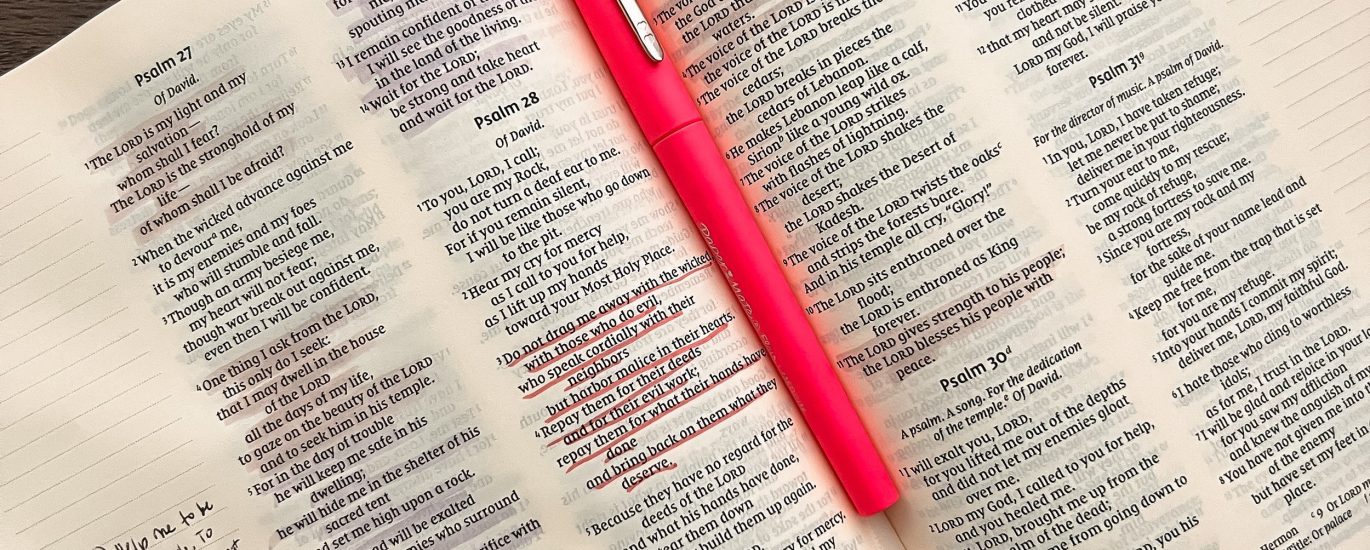 Psalm 27
Of David.
1 The LORD is my light and my
salvation—
whom shall I fear?
The LORD is the stronghold of my
life—
of whom shall I be afraid?
2 When the wicked advance against me
to devour a me,
it is my enemies and my foes
who will stumble and fall.
3 Though an army besiege me,
my heart will not fear;
though war break out against me,
even then I will be confident.
4 One thing I ask from the LORD,
this only do I seek:
that I may dwell in the house
of the LORD
all the days of my life,
to gaze on the beauty of the LORD
and to seek him in his temple.
5 For in the day of trouble
he will keep me safe in his
dwelling;
he will hide me in the shelter of his
sacred tent
and set me high upon a rock.
will be exalted
who surround
with
me to be
to
spouting
13 I remain confident of
I will see the goodness of
in the land of the living.
14 Wait for the LORD;
be strong and take heart
and wait for the LORD.
Psalm 28
Of David.
1 To you, LORD, I call;
you are my Rock,
do not turn a deaf ear to me.
For if you remain silent,
I will be like those who go down
to the pit.
2 Hear my cry for mercy
as I call to you for help,
as I lift up my hands
toward your Most Holy Place.
3 Do not drag me away with the wicked,
with those who do evil,
who speak cordially with their
neighbors
but harbor malice in their hearts.
4 Repay them for their deeds
and for their evil work;
repay them for what their hands have
done
and bring back on them what they
deserve.
5 Because they have no regard for the
deeds of the LORD
and what his hands have done,
tear them down
build them up again.
for mercy
Paper Mate
the God
the LORD
waters.
4 The voice of the LORD is
the voice of the LORD
5 The voice of the LORD breaks the
cedars;
the LORD breaks in pieces the
cedars of Lebanon.
6 He makes Lebanon leap like a calf,
Sirion b like a young wild ox.
7 The voice of the LORD strikes
with flashes of lightning.
8 The voice of the LORD shakes the
desert;
the LORD shakes the Desert of
Kadesh.
9 The voice of the LORD twists the oaks c
and strips the forests bare.
And in his temple all cry, “Glory!”
10 The LORD sits enthroned over the
flood;
the LORD is enthroned as King
forever.
11 The LORD gives strength to his people;
the LORD blesses his people with
peace.
Psalm 30 d
A psalm. A song. For the dedication
of the temple. e Of David.
1 I will exalt you, LORD,
for you lifted me out of the depths
and did not let my enemies gloat
over me.
2 LORD my God, I called to you for help,
and you healed me.
3 You, LORD, brought me up from the
realm of the dead;
me from going down to
you his
You
clothed
12 that my heart may
and not be silent.
LORD my God, I will praise you
forever.
Psalm 31 g
For the director of music. A psalm of David.
1 In you, LORD, I have taken refuge;
let me never be put to shame;
deliver me in your righteousness.
2 Turn your ear to me,
come quickly to my rescue;
be my rock of refuge,
a strong fortress to save me.
3 Since you are my rock and my
fortress,
for the sake of your name lead and
guide me.
4 Keep me free from the trap that is set
for me,
for you are my refuge.
5 Into your hands I commit my spirit;
deliver me, LORD, my faithful God.
6 I hate those who cling to worthless
idols;
as for me, I trust in the LORD.
7 I will be glad and rejoice in your
for you saw my affliction
and knew the anguish of my
8 You have not given me into
of the enemy
but have set my feet in
place.
9 Or LORD
Hermon
Title: Or palace